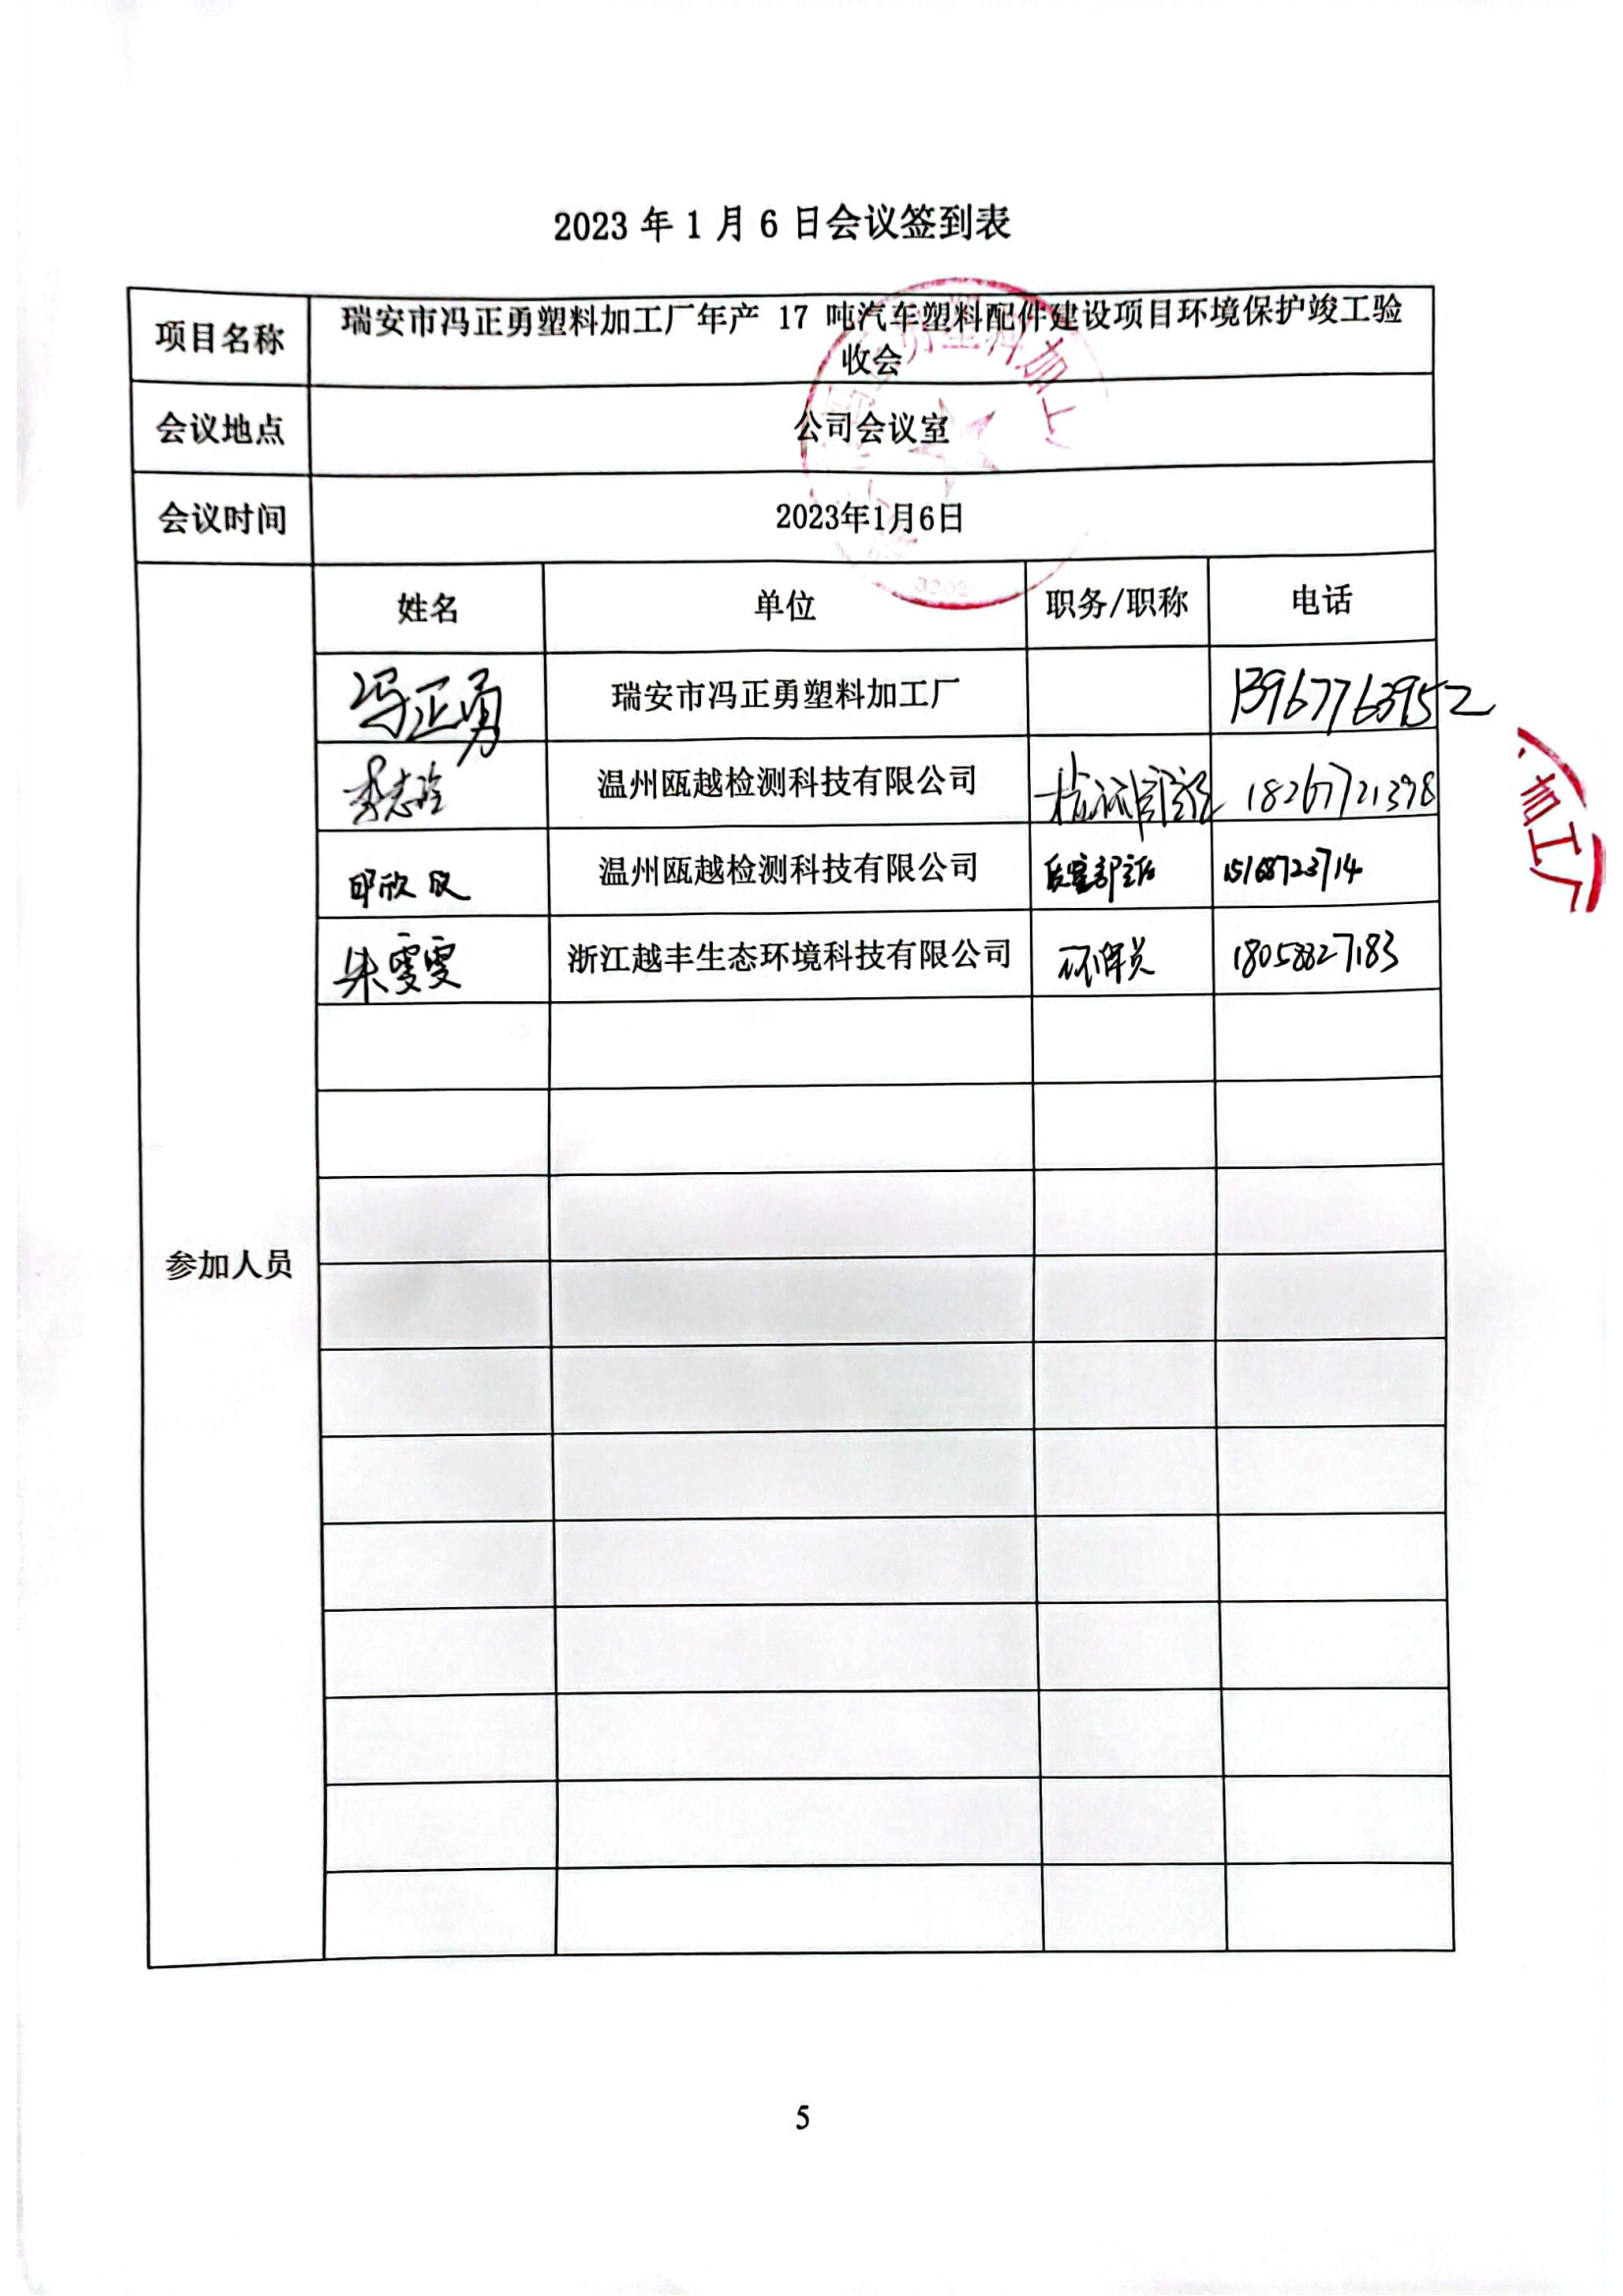 2023 年 1 月 6 日会议签到表
项目名称
瑞安市冯正勇塑料加工厂年产 17 吨汽车塑料配件建设项目环境保护竣工验
收会
会议地点
公司会议室
会议时间
2023年1月6日
参加人员
姓名 单位 职务/职称 电话
冯正勇 瑞安市冯正勇塑料加工厂 13967763952
李志 温州瓯越检测科技有限公司 18267721398
欣 温州瓯越检测科技有限公司 质控部主任 15168723714
朱雯雯 浙江越丰生态环境科技有限公司 环保员 18058827183
加工厂
5